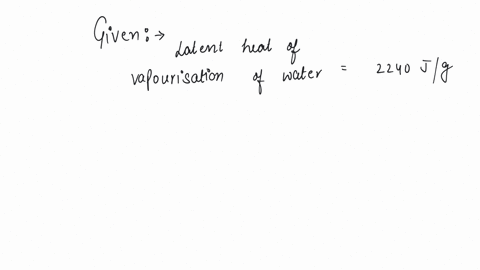 Given:→
Latent heat of
vapourisation of water = 2240 J/g